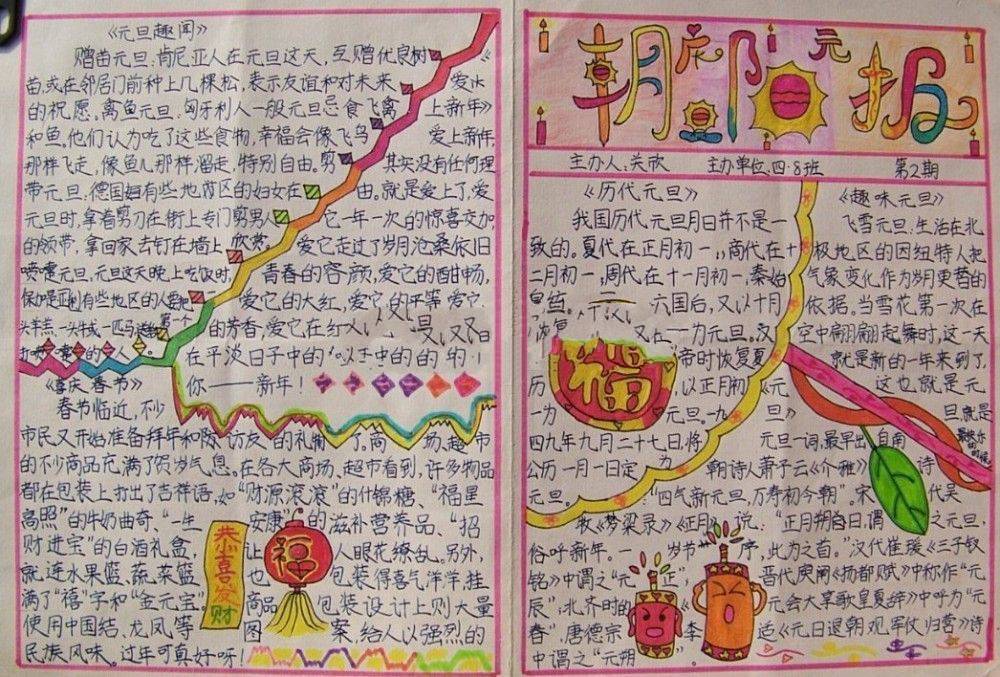 《元旦趣闻》
赠苗元旦.肯尼亚人在元旦这天,互赠优良树
苗,或在邻居门前种上几棵松,表示友谊和对未来
的祝愿。禽鱼元旦,匈牙利人一般元旦忌食飞禽
和鱼。他们认为吃了这些食物,幸福会像飞鸟
那样飞走,像鱼儿那样溜走,特别自由。剪
带元旦,德国姐有些地府区的妇女在
元旦时,拿着剪刀在街上专门剪男人
的领带,拿回家去钉在墙上欣赏。
元旦,元旦这天晚上吃饭时,
有些地区的人
头羊羔一头牛或一匹马
《爱水
上新年》
爱上新年,
其实没有任何理
由。就是爱上了,爱
它一年一次的惊喜交加,
爱它走过了岁月沧桑依旧
青春的容颜,爱它的酣畅,
爱它的大红,爱它的平等,爱它
的芳香,爱它在红
在平淡日子中的
你——新年!
《喜庆春节》
春节临近,不少
市民又开始准备拜年和访友的礼物了。商场、超市
的不少商品充满了贺岁气息。在各大商场、超市看到,许多物品
都在包装上打出了吉祥语,如“财源滚滚”的什锦糖、“福星
高照”的牛奶曲奇、“一生安康”的滋补营养品、“招
财进宝”的白酒礼盒,让人眼花缭乱。另外,
就连水果篮、蔬菜篮也包装得喜气洋洋,挂
满了“禧”字和“金元宝”。商品包装设计上则大量
使用中国结、龙凤等图案,给人以强烈的
民族风味。过年可真好呀!
恭喜发财
福
朝阳报
庆元
主办人:关欣 主办单位:四·8班 第2期
《历代元旦》
我国历代元旦月日并不是一
致的。夏代在正月初一,商代在十
二月初一,周代在十一月初一,秦始
皇统一六国后,又以十月
一为元旦。汉
帝时恢复夏
历,以正月初
一为元旦。一九
四九年九月二十七日,将
公历一月一日定为
元旦。
福
《趣味元旦》
飞雪元旦:生活在北
极地区的因纽特人把
气象变化作为岁月更替的
依据。当雪花第一次在
空中翩翩起舞时,这一天
就是新的一年来到了,
这也就是元
旦
《元
旦》
元旦一词,最早出自南
朝诗人萧子云《介雅》诗
“四气新元旦,万寿初今朝”。宋代吴
牧《梦梁录》《正月》说:“正月朔日,谓之元旦,
俗呼新年。一岁节序,此为之首。”汉代崔瑗《三子钗
铭》中谓之“元正”,晋代庾阐《扬都赋》中称作“元
辰”;北齐时的《元会大享歌皇夏辞》中呼为“元
春”,唐德宗李适《元日退朝观军仗归营》诗
中谓之“元朔”。